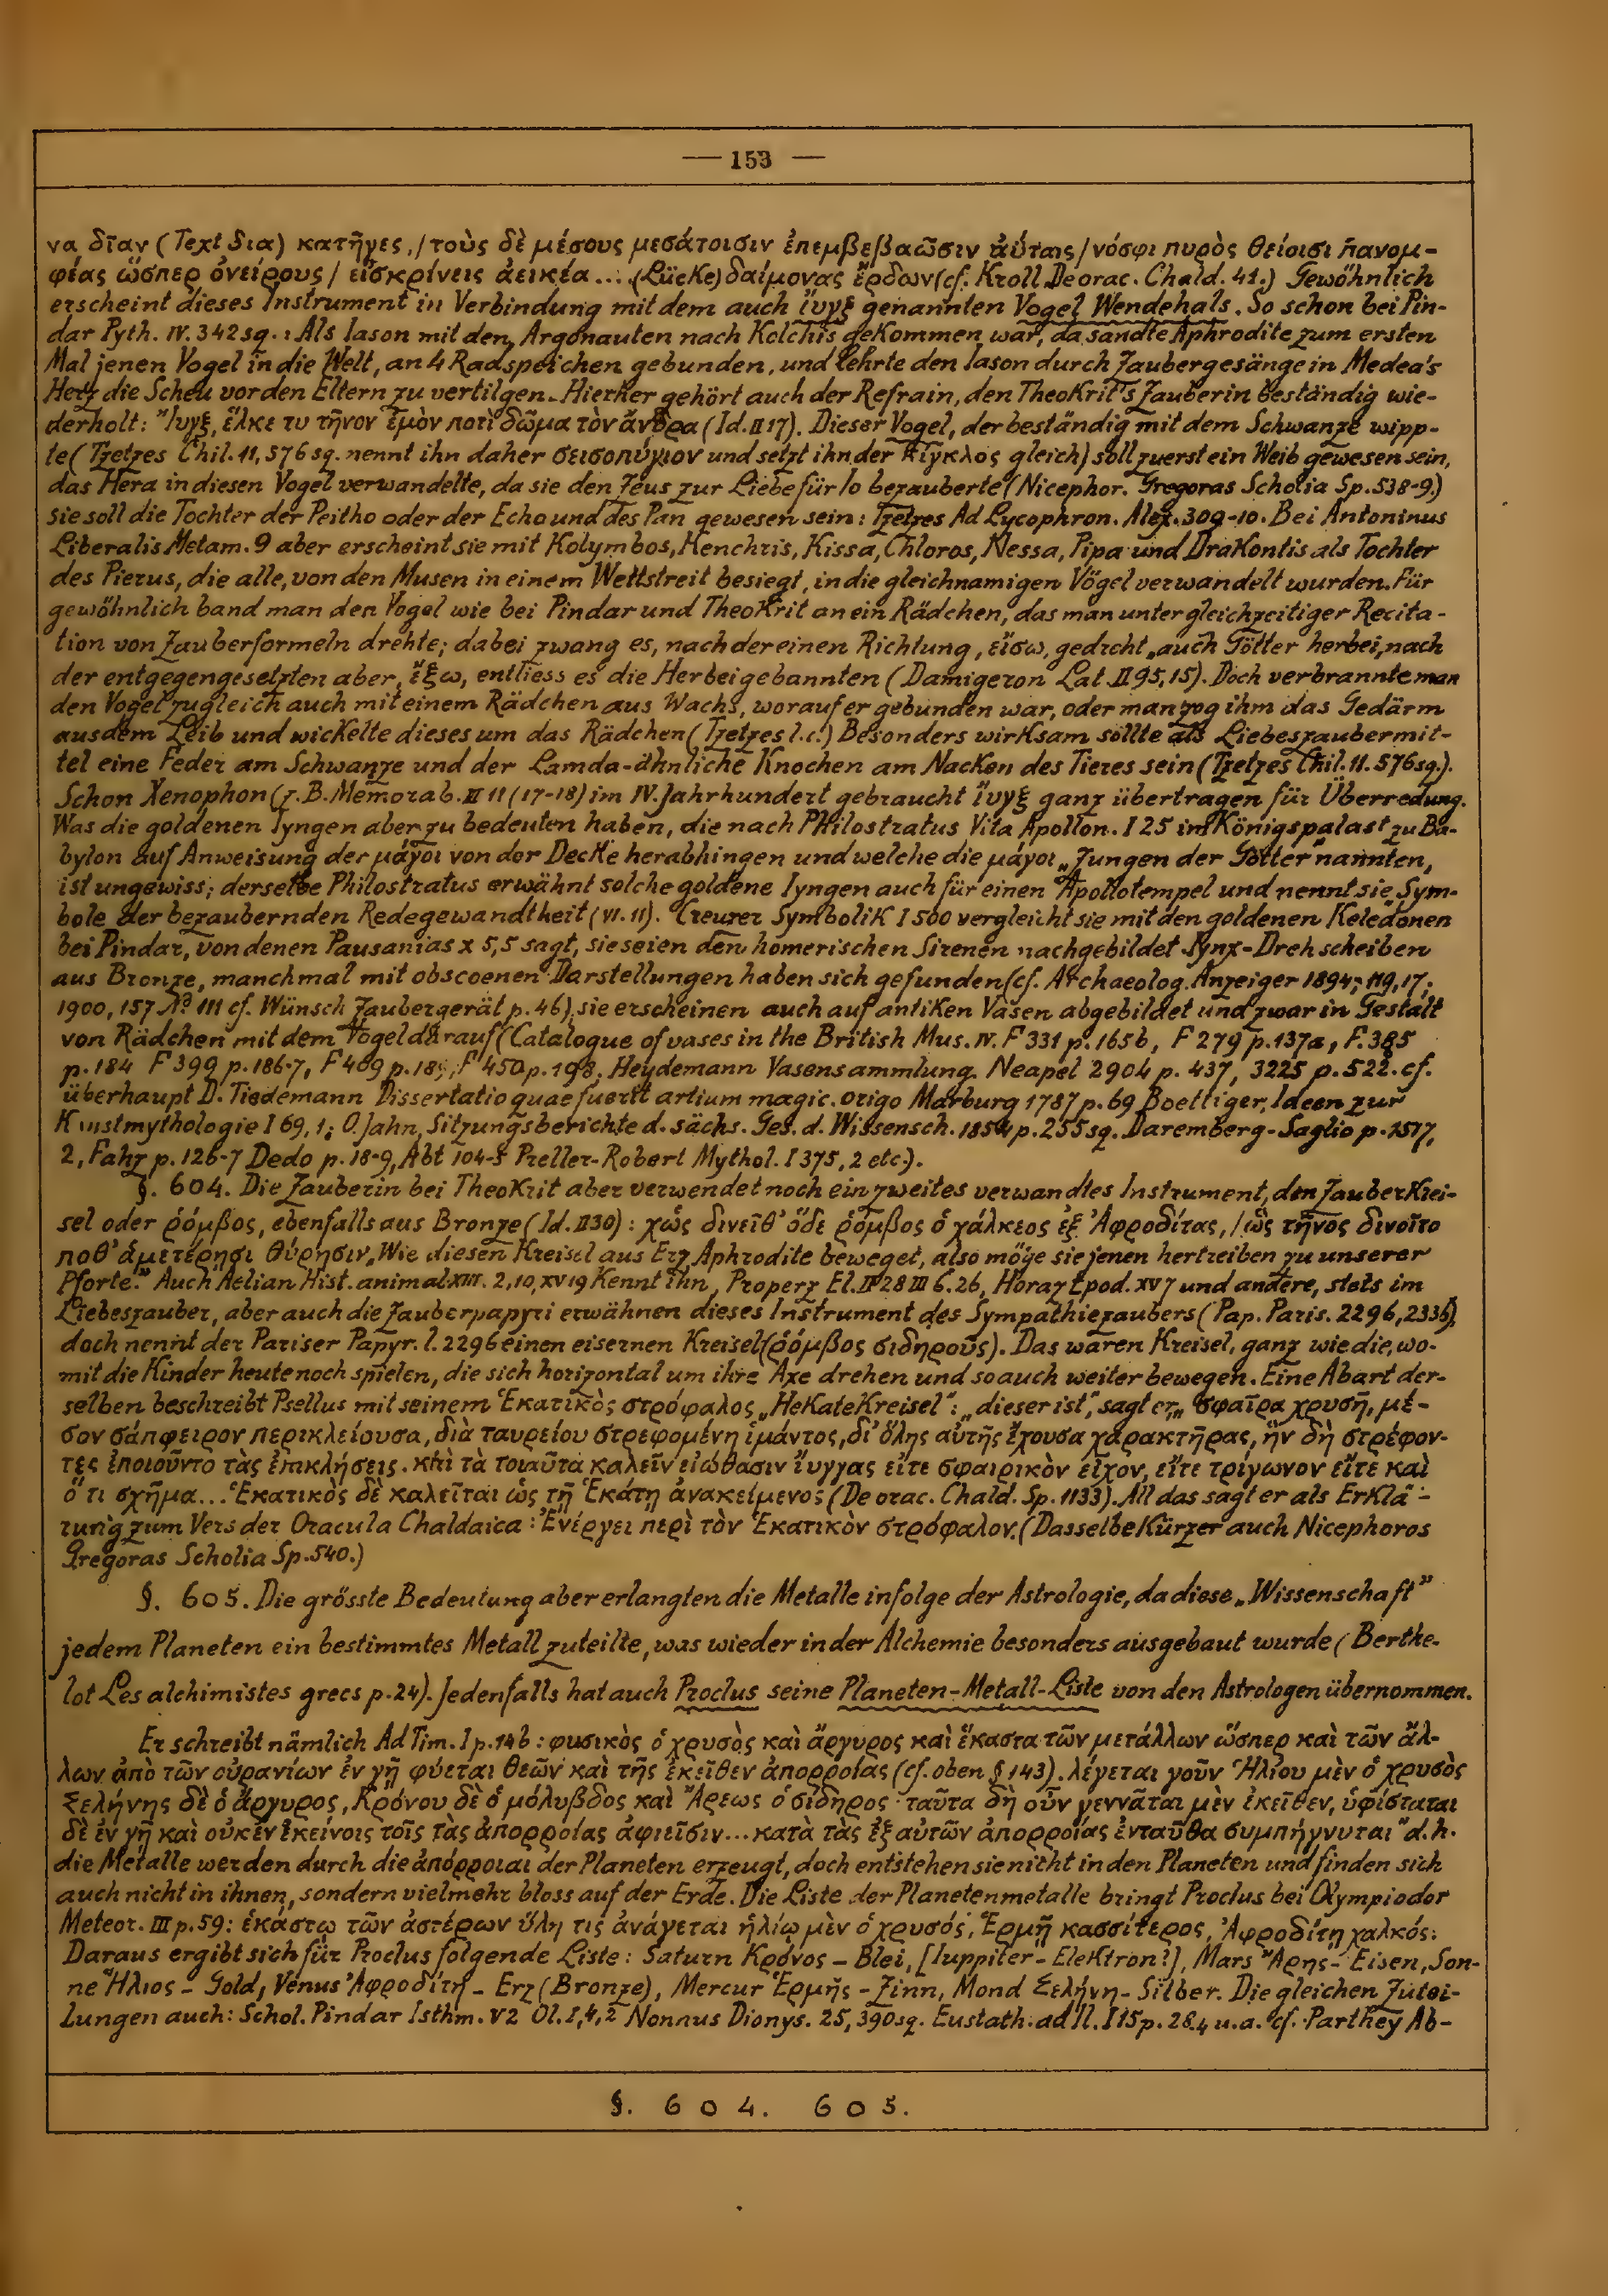 — 153 —
να δῖαν (Text δια) κατῆγες, / τοὺς δὲ μέσους μεσάτοισιν ἐπεμβεβαῶσιν ἀύταις / νόσφι πυρὸς θείοισι πανομ-
φέας ὥσπερ ὀνείρους / εἰσκρίνεις ἀεικέα ... (Lücke) δαίμονας ἔρδων (cf. Kroll De orac. Chald. 41.) Gewöhnlich
erscheint dieses Instrument in Verbindung mit dem auch ἴυγξ genannten Vogel Wendehals. So schon bei Pin-
dar Pyth. IV. 342 sq.: Als Iason mit den Argonauten nach Kolchis gekommen war, da sandte Aphrodite zum ersten
Mal jenen Vogel in die Welt, an 4 Radspeichen gebunden, und lehrte den Iason durch Zaubergesänge in Medea's
Herz die Scheu vor den Eltern zu vertilgen. Hierher gehört auch der Refrain, den Theokrit's Zauberin beständig wie-
derholt: Ἴυγξ, ἕλκε τυ τῆνον ἐμὸν ποτὶ δῶμα τὸν ἄνδρα (Id. II 17). Dieser Vogel, der beständig mit dem Schwanze wipp-
te (Tzetzes Chil. 11, 576 sq. nennt ihn daher σεισοπύγιον und setzt ihn der κίγκλος gleich) soll zuerst ein Weib gewesen sein,
das Hera in diesen Vogel verwandelte, da sie den Zeus zur Liebe für Io bezauberte (Nicephor. Gregoras Scholia Sp. 538-9.)
Sie soll die Tochter der Peitho oder der Echo und des Pan gewesen sein: Tzetzes Ad Lycophron. Alex. 309-10. Bei Antoninus
Liberalis Metam. 9 aber erscheint sie mit Kolymbos, Kenchris, Kissa, Chloros, Nessa, Pipa und Drakontis als Tochter
des Pierus, die alle, von den Musen in einem Wettstreit besiegt, in die gleichnamigen Vögel verwandelt wurden. Für
gewöhnlich band man den Vogel wie bei Pindar und Theokrit an ein Rädchen, das man unter gleichzeitiger Recita-
tion von Zauberformeln drehte; dabei zwang es, nach der einen Richtung, εἴσω, gedreht, auch Götter herbei, nach
der entgegengesetzten aber, ἔξω, entliess es die Herbeigebannten (Damigeron Lat. II 95, 15). Doch verbrannte man
den Vogel zugleich auch mit einem Rädchen aus Wachs, worauf er gebunden war, oder man zog ihm das Gedärm
aus dem Leib und wickelte dieses um das Rädchen (Tzetzes l. c.) Besonders wirksam sollte als Liebeszaubermit-
tel eine Feder am Schwanze und der Lamda-ähnliche Knochen am Nacken des Tieres sein (Tzetzes Chil. 11. 576 sq.).
Schon Xenophon (z. B. Memorab. III 11 (17-18) im IV. Jahrhundert gebraucht ἴυγξ ganz übertragen für Überredung.
Was die goldenen Iyngen aber zu bedeuten haben, die nach Philostratus Vita Apollon. I 25 im Königspalast zu Ba-
bylon auf Anweisung der μάγοι von der Decke herabhingen und welche die μάγοι „Zungen der Götter" nannten,
ist ungewiss; derselbe Philostratus erwähnt solche goldene Iyngen auch für einen Apollotempel und nennt sie „Sym-
bole der bezaubernden Redegewandtheit (VI. 11). Creuzer Symbolik I 500 vergleicht sie mit den goldenen Keledonen
bei Pindar, von denen Pausanias X 5,5 sagt, sie seien den homerischen Sirenen nachgebildet. Iynx-Drehscheiben
aus Bronze, manchmal mit obscoenen Darstellungen haben sich gefunden (cf. Archaeolog. Anzeiger 1894, 119, 17;
1900, 157 No 111 cf. Wünsch Zaubergerät p. 46), sie erscheinen auch auf antiken Vasen abgebildet und zwar in Gestalt
von Rädchen mit dem Vogel darauf (Catalogue of vases in the British Mus. IV. F 331 p. 165b, F 279 p. 137a, F. 385
p. 184 F 399 p. 186-7, F 409 p. 189, F 450 p. 198, Heydemann Vasensammlung. Neapel 2904 p. 437, 3225 p. 522. cf.
überhaupt D. Tiedemann Dissertatio quae fuerit artium magic. origo Marburg 1787 p. 69 Boettiger, Ideen zur
Kunstmythologie I 69, 1; O. Jahn, Sitzungsberichte d. sächs. Ges. d. Wissensch. 1854 p. 255 sq. Daremberg-Saglio p. 1517,
2, Fahz p. 126-7 Dedo p. 18-9, Abt 104-5 Preller-Robert Mythol. I 375, 2 etc.).
§. 604. Die Zauberin bei Theokrit aber verwendet noch ein zweites verwandtes Instrument, den Zauberkrei-
sel oder ῥόμβος, ebenfalls aus Bronze (Id. II 30): χὡς δινεῖθ' ὅδε ῥόμβος ὁ χάλκεος ἐξ Ἀφροδίτας, / ὣς τῆνος δινοῖτο
ποθ' ἁμετέρησι θύρησιν „Wie diesen Kreisel aus Erz Aphrodite beweget, also möge sie jenen hertreiben zu unserer
Pforte." Auch Aelian Hist. animal XIII. 2, 10, XV 19 kennt ihn, Properz El. II 28 III 6. 26, Horaz Epod. XV 7 und andere, stets im
Liebeszauber, aber auch die Zauberpapyri erwähnen dieses Instrument des Sympathiezaubers (Pap. Paris. 2296, 2336),
doch nennt der Pariser Papyr. l. 2296 einen eisernen Kreisel (ῥόμβος σιδηροῦς). Das waren Kreisel, ganz wie die, wo-
mit die Kinder heute noch spielen, die sich horizontal um ihre Axe drehen und so auch weiter bewegen. Eine Abart der-
selben beschreibt Psellus mit seinem Ἑκατικὸς στρόφαλος „HekateKreisel": „dieser ist", sagt er, „σφαῖρα χρυσῆ, μέ-
σον σάπφειρον περικλείουσα, διὰ ταυρείου στρεφομένη ἱμάντος, δι' ὅλης αὐτῆς ἔχουσα χαρακτῆρας, ἣν δὴ στρέφον-
τες ἐποιοῦντο τὰς ἐπικλήσεις. καὶ τὰ τοιαῦτα καλεῖν εἰώθασιν ἴυγγας εἴτε σφαιρικὸν εἶχον, εἴτε τρίγωνον εἴτε καὶ
ὅ τι σχῆμα... Ἑκατικὸς δὲ καλεῖται ὡς τῇ Ἑκάτῃ ἀνακείμενος (De orac. Chald. Sp. 1133). All das sagt er als Erklä-
rung zum Vers der Oracula Chaldaica: Ἐνέργει περὶ τὸν Ἑκατικὸν στρόφαλον. (Dasselbe kürzer auch Nicephoros
Gregoras Scholia Sp. 540.)
§. 605. Die grösste Bedeutung aber erlangten die Metalle infolge der Astrologie, da diese „Wissenschaft"
jedem Planeten ein bestimmtes Metall zuteilte, was wieder in der Alchemie besonders ausgebaut wurde (Berthe-
lot Les alchimistes grecs p. 24). Jedenfalls hat auch Proclus seine Planeten-Metall-Liste von den Astrologen übernommen.
Er schreibt nämlich Ad Tim. I p. 14b: φυσικὸς ὁ χρυσὸς καὶ ἄργυρος καὶ ἕκαστα τῶν μετάλλων ὥσπερ καὶ τῶν ἄλ-
λων ἀπὸ τῶν οὐρανίων ἐν γῇ φύεται θεῶν καὶ τῆς ἐκεῖθεν ἀπορροίας (cf. oben § 143). λέγεται γοῦν Ἡλίου μὲν ὁ χρυσὸς
Σελήνης δὲ ὁ ἄργυρος, Κρόνου δὲ ὁ μόλυβδος καὶ Ἄρεως ὁ σίδηρος· ταῦτα δὴ οὖν γεννᾶται μὲν ἐκεῖθεν, ὑφίσταται
δὲ ἐν γῇ καὶ οὐκ ἐν ἐκείνοις τοῖς τὰς ἀπορροίας ἀφιεῖσιν... κατὰ τὰς ἐξ αὐτῶν ἀπορροίας ἐνταῦθα συμπήγνυται" d. h.
die Metalle werden durch die ἀπόρροιαι der Planeten erzeugt, doch entstehen sie nicht in den Planeten und finden sich
auch nicht in ihnen, sondern vielmehr bloss auf der Erde. Die Liste der Planetenmetalle bringt Proclus bei Olympiodor
Meteor. III p. 59: ἑκάστῳ τῶν ἀστέρων ὕλη τις ἀνάγεται ἡλίῳ μὲν ὁ χρυσός, Ἑρμῇ κασσίτερος, Ἀφροδίτῃ χαλκός.
Daraus ergibt sich für Proclus folgende Liste: Saturn Κρόνος - Blei, [Iuppiter - Elektron?], Mars Ἄρης - Eisen, Son-
ne Ἥλιος - Gold, Venus Ἀφροδίτη - Erz (Bronze), Mercur Ἑρμῆς - Zinn, Mond Σελήνη - Silber. Die gleichen Zutei-
lungen auch: Schol. Pindar Isthm. V 2 Ol. I, 4, 2 Nonnus Dionys. 25, 390 sq. Eustath. ad Il. I 15 p. 28.4 u. a. cf. Parthey Ab-
§. 604. 605.